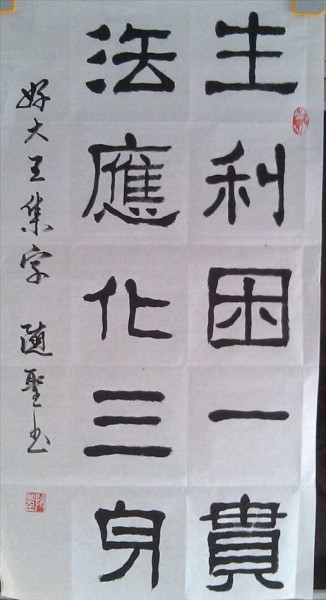 生利困一貴
法應化三身
好大王集字 随聖书